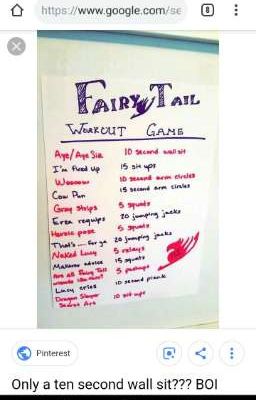 https://www.google.com/se
8
FAIRY TAIL
WORKOUT GAME
Aye/Aye Sir 10 second wall sit
I'm fired up 15 sit ups
10 second arm circles
Cow Pun 15 second arm circles
Gray strips 5 squats
Erza requips 20 jumping jacks
Heroic pose 5 squats
That's... for ya 20 jumping jacks
Naked Lucy 5 relays
Makarov advice 15 squats
5 pushups
Lucy cries 10 second plank
Dragon Slayer 10 sit ups
Secret Art
Pinterest
Only a ten second wall sit??? BOI